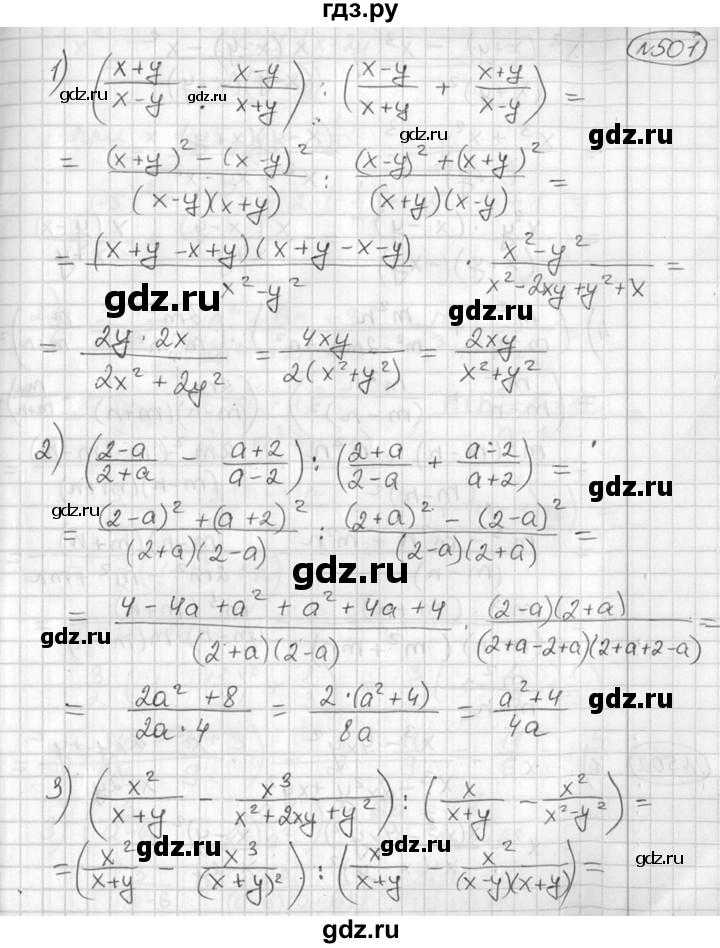 гдз.ру
№501
1) ((x+y)/(x-y) - (x-y)/(x+y)) : ((x-y)/(x+y) + (x+y)/(x-y)) =
gdz.ru gdz.ru gdz.ru gdz.ru
= ((x+y)² - (x-y)²)/((x-y)(x+y)) : ((x-y)² + (x+y)²)/((x+y)(x-y)) =
= ((x+y -x+y)(x+y -x-y))/(x²-y²) · (x²-y²)/(x²-2xy+y²+x =
gdz.ru gdz.ru
= (2y·2x)/(2x²+2y²) = 4xy/(2(x²+y²)) = 2xy/(x²+y²)
2) ((2-a)/(2+a) - (a+2)/(a-2)) : ((2+a)/(2-a) + (a-2)/(a+2)) =
gdz.ru gdz.ru
= ((2-a)² + (a+2)²)/((2+a)(2-a)) : ((2+a)² - (2-a)²)/((2-a)(2+a)) =
gdz.ru
= (4-4a+a²+a²+4a+4)/((2+a)(2-a)) · ((2-a)(2+a))/((2+a-2+a)(2+a+2-a)) =
gdz.ru
= (2a²+8)/(2a·4) = (2·(a²+4))/8a = (a²+4)/4a
gdz.ru
3) (x²/(x+y) - x³/(x²+2xy+y²)) : (x/(x+y) - x²/(x²-y²)) =
gdz.ru gdz.ru gdz.ru
= (x²/(x+y) - x³/(x+y)²) : (x/(x+y) - x²/((x-y)(x+y))) =
gdz.ru